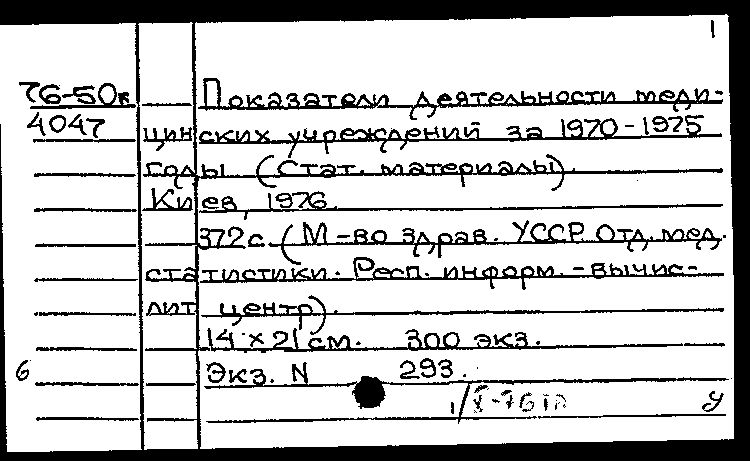 1
76-50к Показатели деятельности меди-
4047 цинских учреждений за 1970-1975
годы (Стат. материалы).
Киев, 1976.
372с. (М-во здрав. УССР. Отд. мед.
статистики. Респ. информ.-вычис-
лит. центр).
14 x 21 см. 300 экз.
6 Экз. N 293.
У